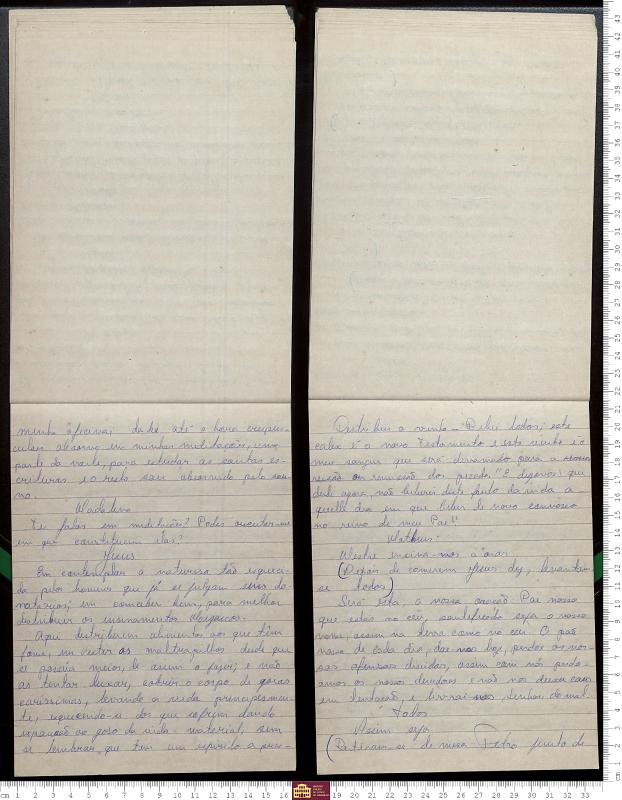 minha oficina; dahi até a hora crepus-
cular absorvo em minhas meditações, uma
parte da noite, para estudar as santas es-
crituras e o resto sou absorvido pelo so-
no.
Madalena
Tu falas em meditações? Podes
em que constituem elas?
Jesus
Em contemplar a natureza tão esqueci-
da pelos homens que já se julgam seus do-
natarios; em conceber bem, para melhor
distribuir os ensinamentos
Aqui distribuem alimentos aos que têm
fome, um vestir os maltrapilhos desde que
se possua meios, de assim o fazer, e não
as tentar luxar, cobrir o corpo de joias
carissimas, levando a vida principesmen-
te, esquecendo-se dos que sofrem dando
expansão ao goso da vida material, sem
se lembrar, que têm um espirito a pres-
Distribui o vinho — Bebei todos; este
calix é o novo Testamento e este vinho é o
meu sangue que será derramado para a
remissão dos pecados." E digovos: que
desde agora, não beberei deste fruto da vinda a
quelle dia em que beber de novo comvosco
no reino de meu Pai"
Matheus:
Mestre ensina-nos a orar
(Depois de comerem Jesus diz, levantam
se todos)
Será esta, a nossa oração: Pae nosso
que estás no céu, santificado seja o nosso
nome, assim na terra como no céu. O pão
nosso de cada dia, dae-nos hoje, perdoe as nos-
sas ofensas dividas, assim com nós perdo-
amos os nossos dividores e não nos deixeis cair
em tentação, e livrai-nos senhor do mal.
Todos
Assim seja
(Retiram-se da mesa Pedro junto de